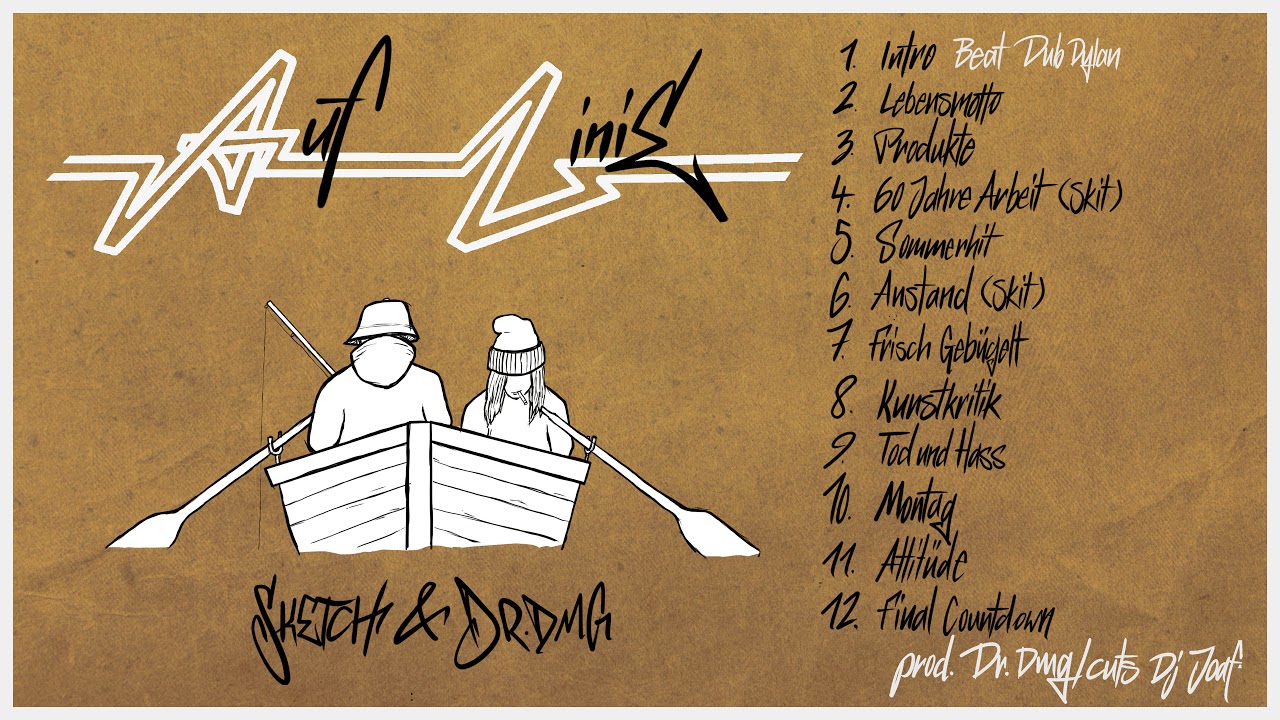 Auf Linie
Sketch & Dr.Dmg
1. Intro Beat Dub Dylan
2. Lebensmotto
3. Produkte
4. 60 Jahre Arbeit (Skit)
5. Sommerhit
6. Anstand (Skit)
7. Frisch Gebügelt
8. Kunstkritik
9. Tod und Hass
10. Montag
11. Attitüde
12. Final Countdown
prod. Dr. Dmg/cuts Dj Joaf